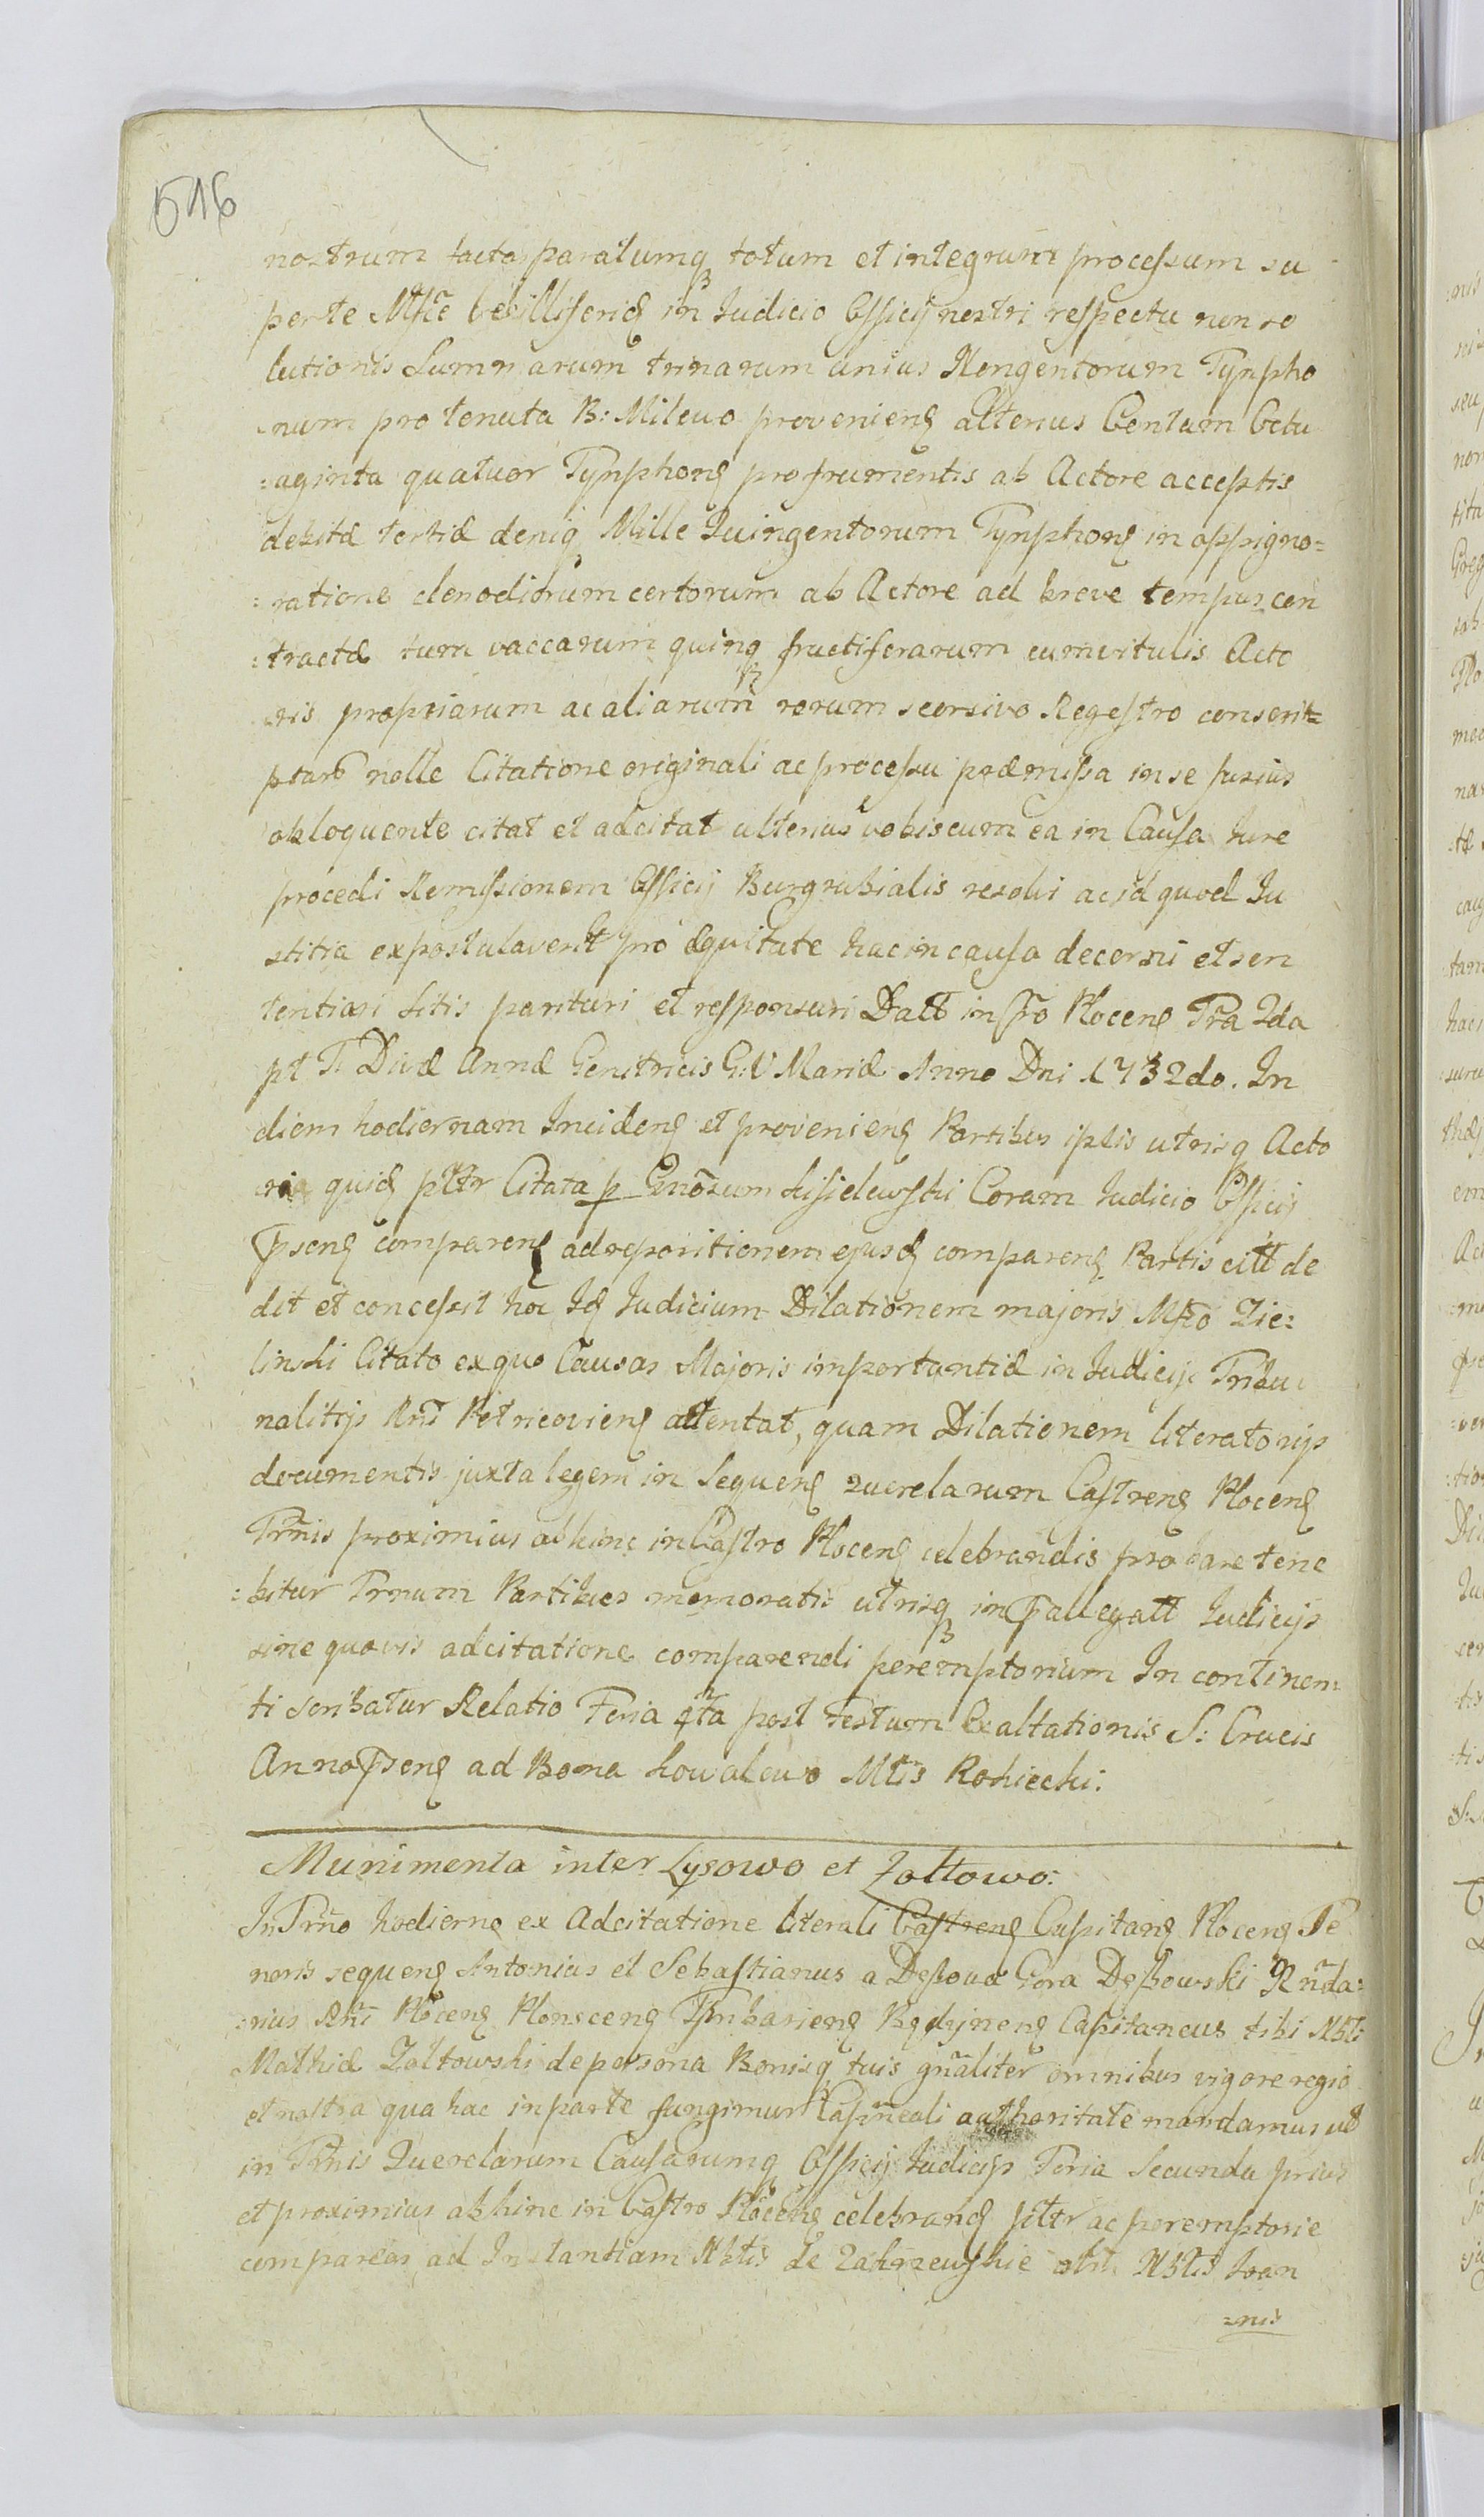 516
nostrum facto paratumq totum et integrum processum su
per te Mfce Vexilliferid in Judicio Officij nostri respectu non so
lutionis Summarum trinarum unius Nongentorum Tynpho
-num pro tenuta B: Milewo provenieng alterius Centum Octu
=aginta quatuor Tynphong pro frumentis ab Actore acceptis
debitæ tertiæ deniq Mille Quingentorum Tynphong in oppigno=
=ratione clenodiorum certorum ab Actore ad breve tempus con
=tractæ tum vaccarum quinq fructiferarum cum vitulis Acto
=ris propriarum ac aliarum rerum seorsivo Regestro conscrip=
ptar nolle Citatione originali ac processu præmissa in se fusius
obloquente citat et adcitat ulterius vobiscum ea in Causa Jure
procedi Remissionem Officij Burgrabialis resolvi ac id quod Ju
stitia expostulaverit pro æquitate hac in causa decerni et sen
tentiari Sitis parituri et responsuri Datt in Plo Ploceng Fra 2da
pt F. Divæ Annæ Genitricis G: V Mariæ Anno Dni 1732do. In
diem hodiernam Incideng et provenieng Partibus ipsis utrisq Acto
ria quid pltr Citata p Gnosum Kisielewski Coram Judicio Officij
pseng compareng ad repositionem ejusd compareng Partis citt de
dit et concessit hoc Id Judicium Dilationem majoris Mfco Zie=
linski Citato ex quo Causas Majoris importantiæ in Judicijs Tribu
nalitijs Rni Petricovieng attentat, quam Dilationem literatorijs
documentis juxta legem in Sequeng querelarum Castreng Ploceng
Trnis proximius abhinc in Castro Ploceng celebrandis probare tene
=bitur Trnum Partibus memoratis utrisq in pallegatt Judicijs
sine quovis adcitatione comparendi peremptorium In continen=
ti scribatur Relatio Feria 4ta post Festum Exaltationis S: Crucis
Anno pseng ad Bona Kowalewo Mtis Rokicki:
Munimenta inter Lysowo et Zoltowo:
In Trno hodierno ex Adcitatione literali Castreng Capitang Ploceng Te
noris sequeng Antonius et Sebastianus a Dębowa Gora Dębowski Rnda=
=rius Rni Ploceng Plonsceng Capitaneus tibi Nbli
Mathiæ Zoltowski de persona Bonisq tuis gnaliter omnibus vigore regio
et nostra qua hac in parte fungimur Capneali authoritate mandamus ut
in Trnis Querelarum Causarumq Officij Judicijs Feria Secunda prius
et proximius abhinc in Castro Ploceng celebrand pltr ac peremptorie
compareas ad Instantiam Nbtis de Zakrzewskie Nbtis Joan
=nis